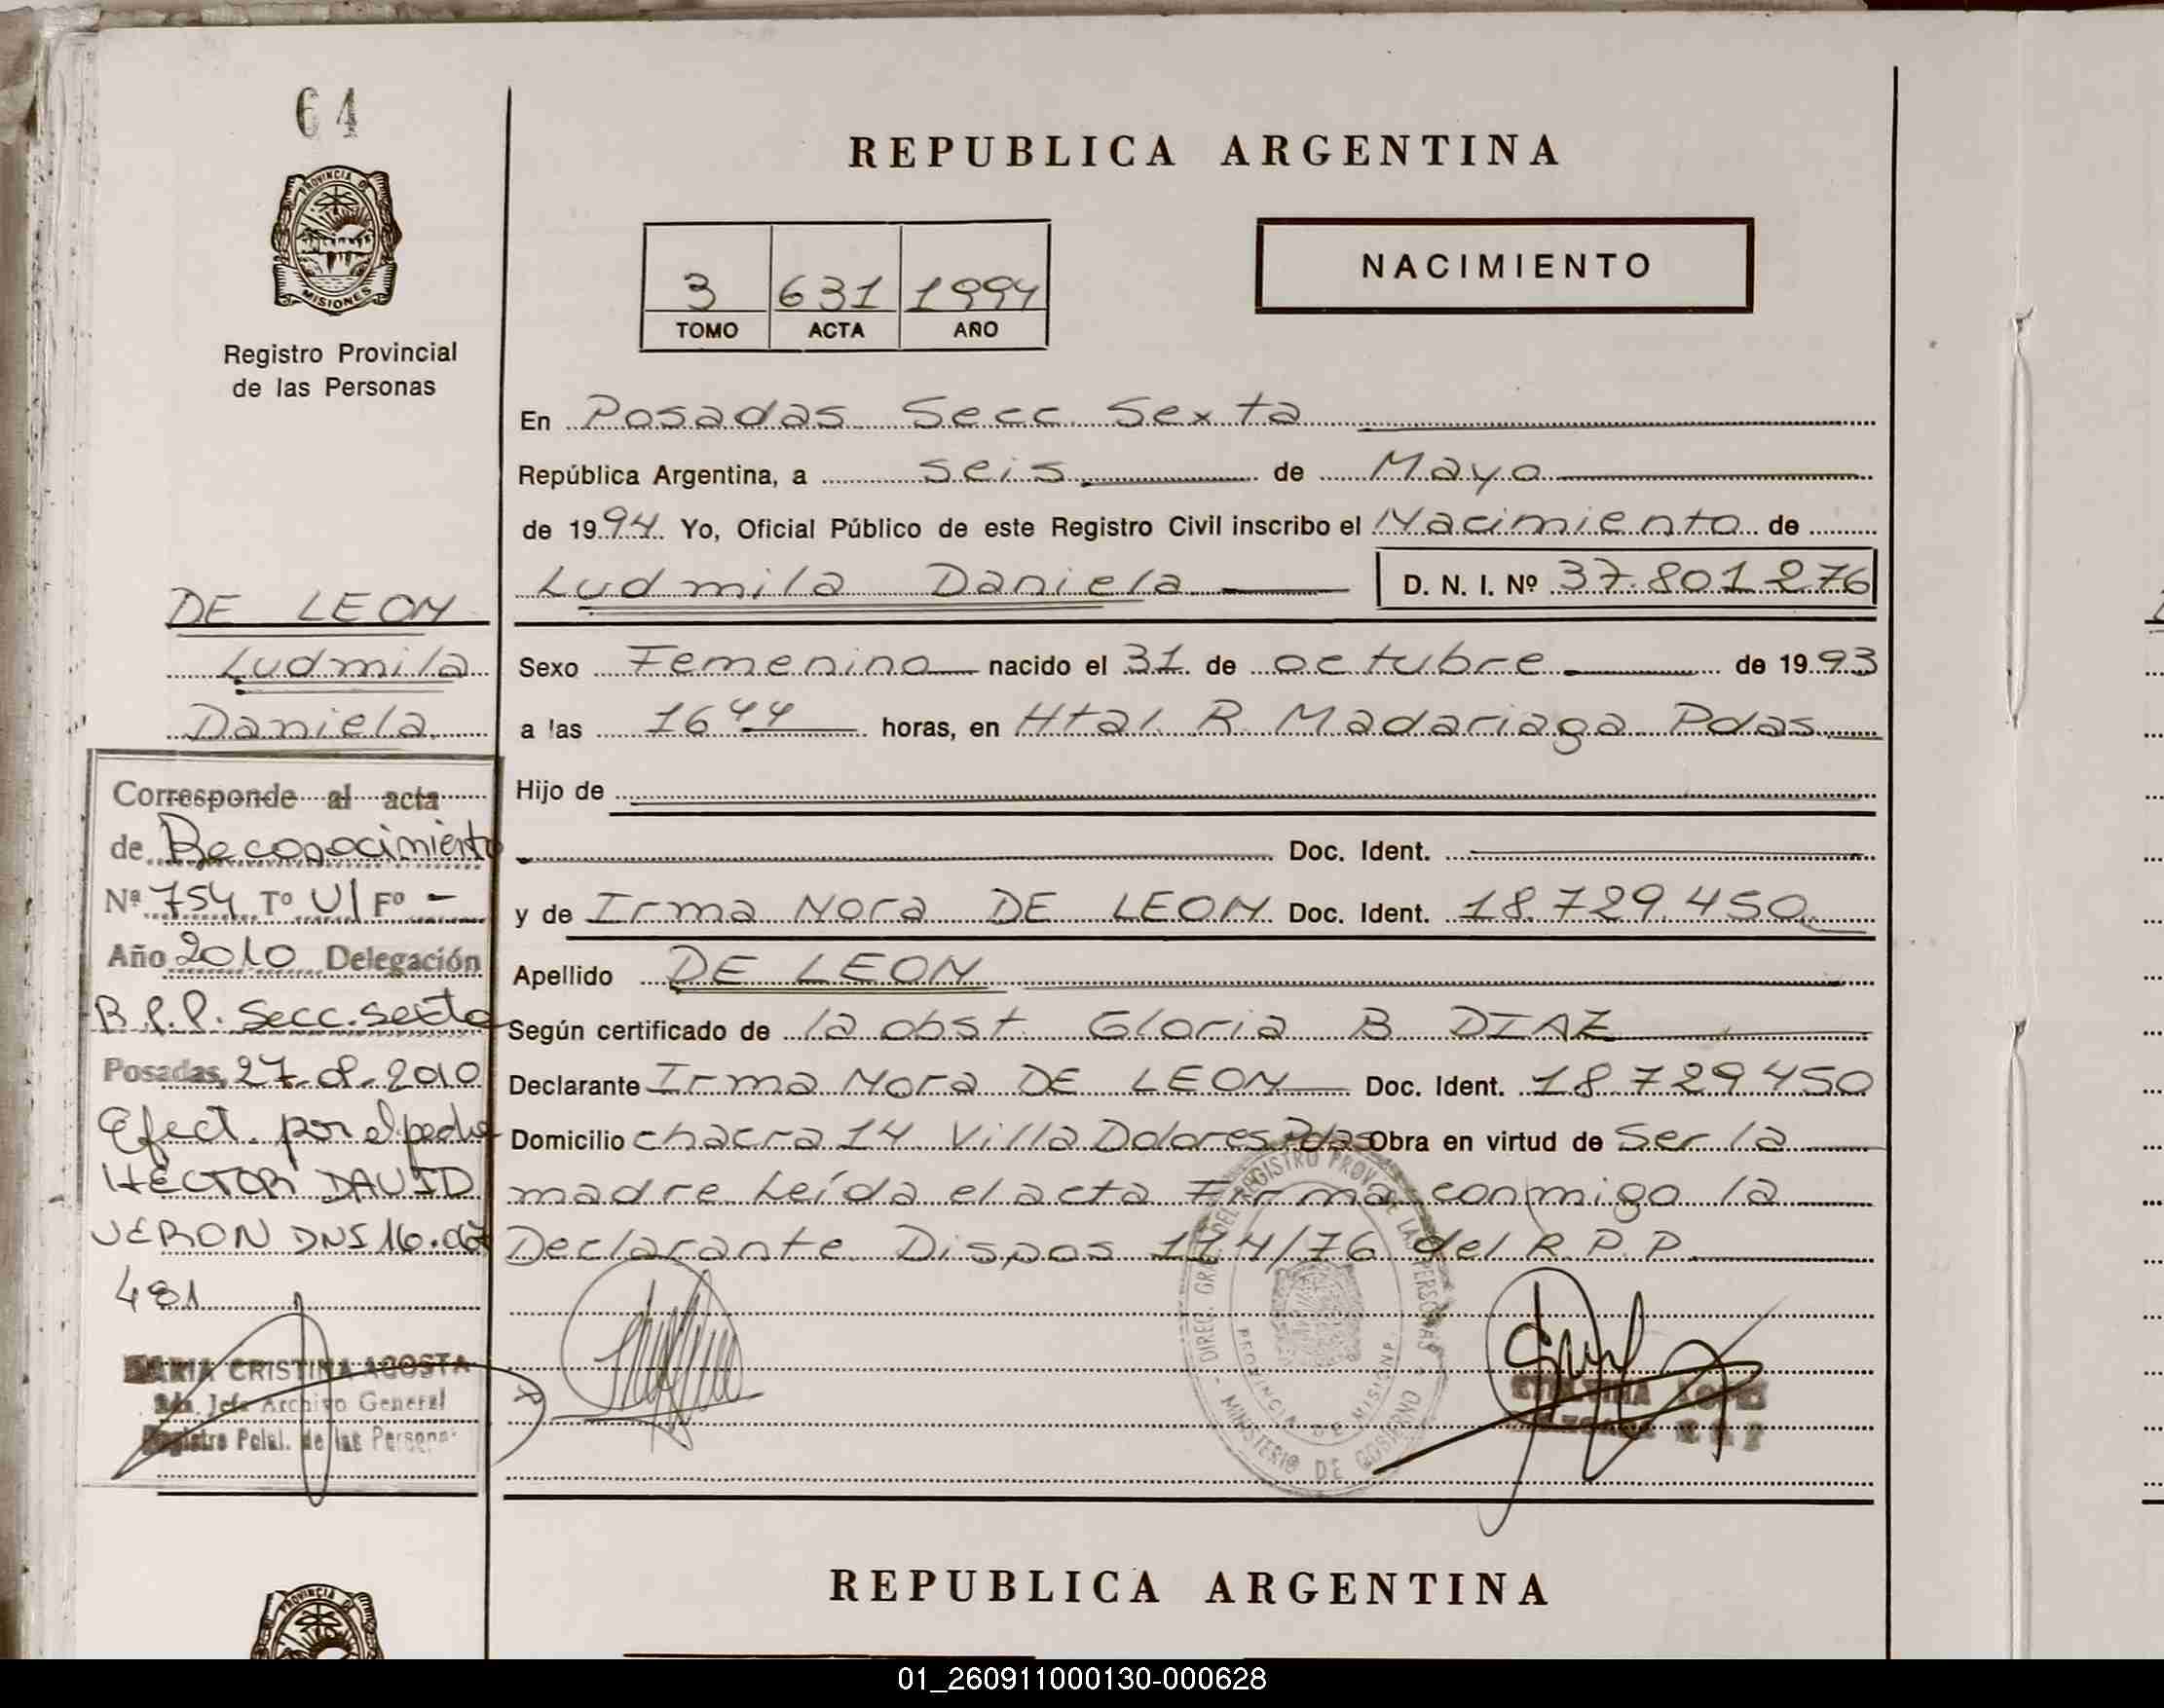 64
PROVINCIA DE
MISIONES
Registro Provincial
de las Personas
REPUBLICA ARGENTINA
3 631 1994
TOMO ACTA AÑO
NACIMIENTO
En Posadas Secc. Sexta
República Argentina, a seis de Mayo
de 1994. Yo, Oficial Público de este Registro Civil inscribo el Nacimiento de
Ludmila Daniela D. N. I. Nº 37.801.276
Sexo Femenino nacido el 31 de octubre de 1993
a las 16 44 horas, en Htal. R. Madariaga Pdas.
Hijo de
Doc. Ident.
y de Irma Nora DE LEON Doc. Ident. 18.729.450
Apellido DE LEON
Según certificado de la obst. Gloria B. DIAZ
Declarante Irma Nora DE LEON Doc. Ident. 18.729.450
Domicilio chacra 14 Villa Dolores Pdas Obra en virtud de Ser la
madre Leída el acta Firma conmigo la
Declarante. Dispos 174/76 del R.P.P.
DE LEON
Ludmila
Daniela
Corresponde al acta
de Reconocimiento
Nº 754 Tº U/ Fº -
Año 2010 Delegación
R.P.P. Secc. sexta
Posadas, 27-8-2010
Efect. por el padre
HECTOR DAVID
VERON DNI 16.067
481
MARIA CRISTINA AGOSTA
Jefe Archivo General
Registro Pcial. de las Personas
DIREC. GRAL DEL REGISTRO PROV. DE LAS PERSONAS
PROVINCIA DE MISIONES
MINISTERIO DE GOBIERNO
REPUBLICA ARGENTINA
PROVINCIA
01_260911000130-000628